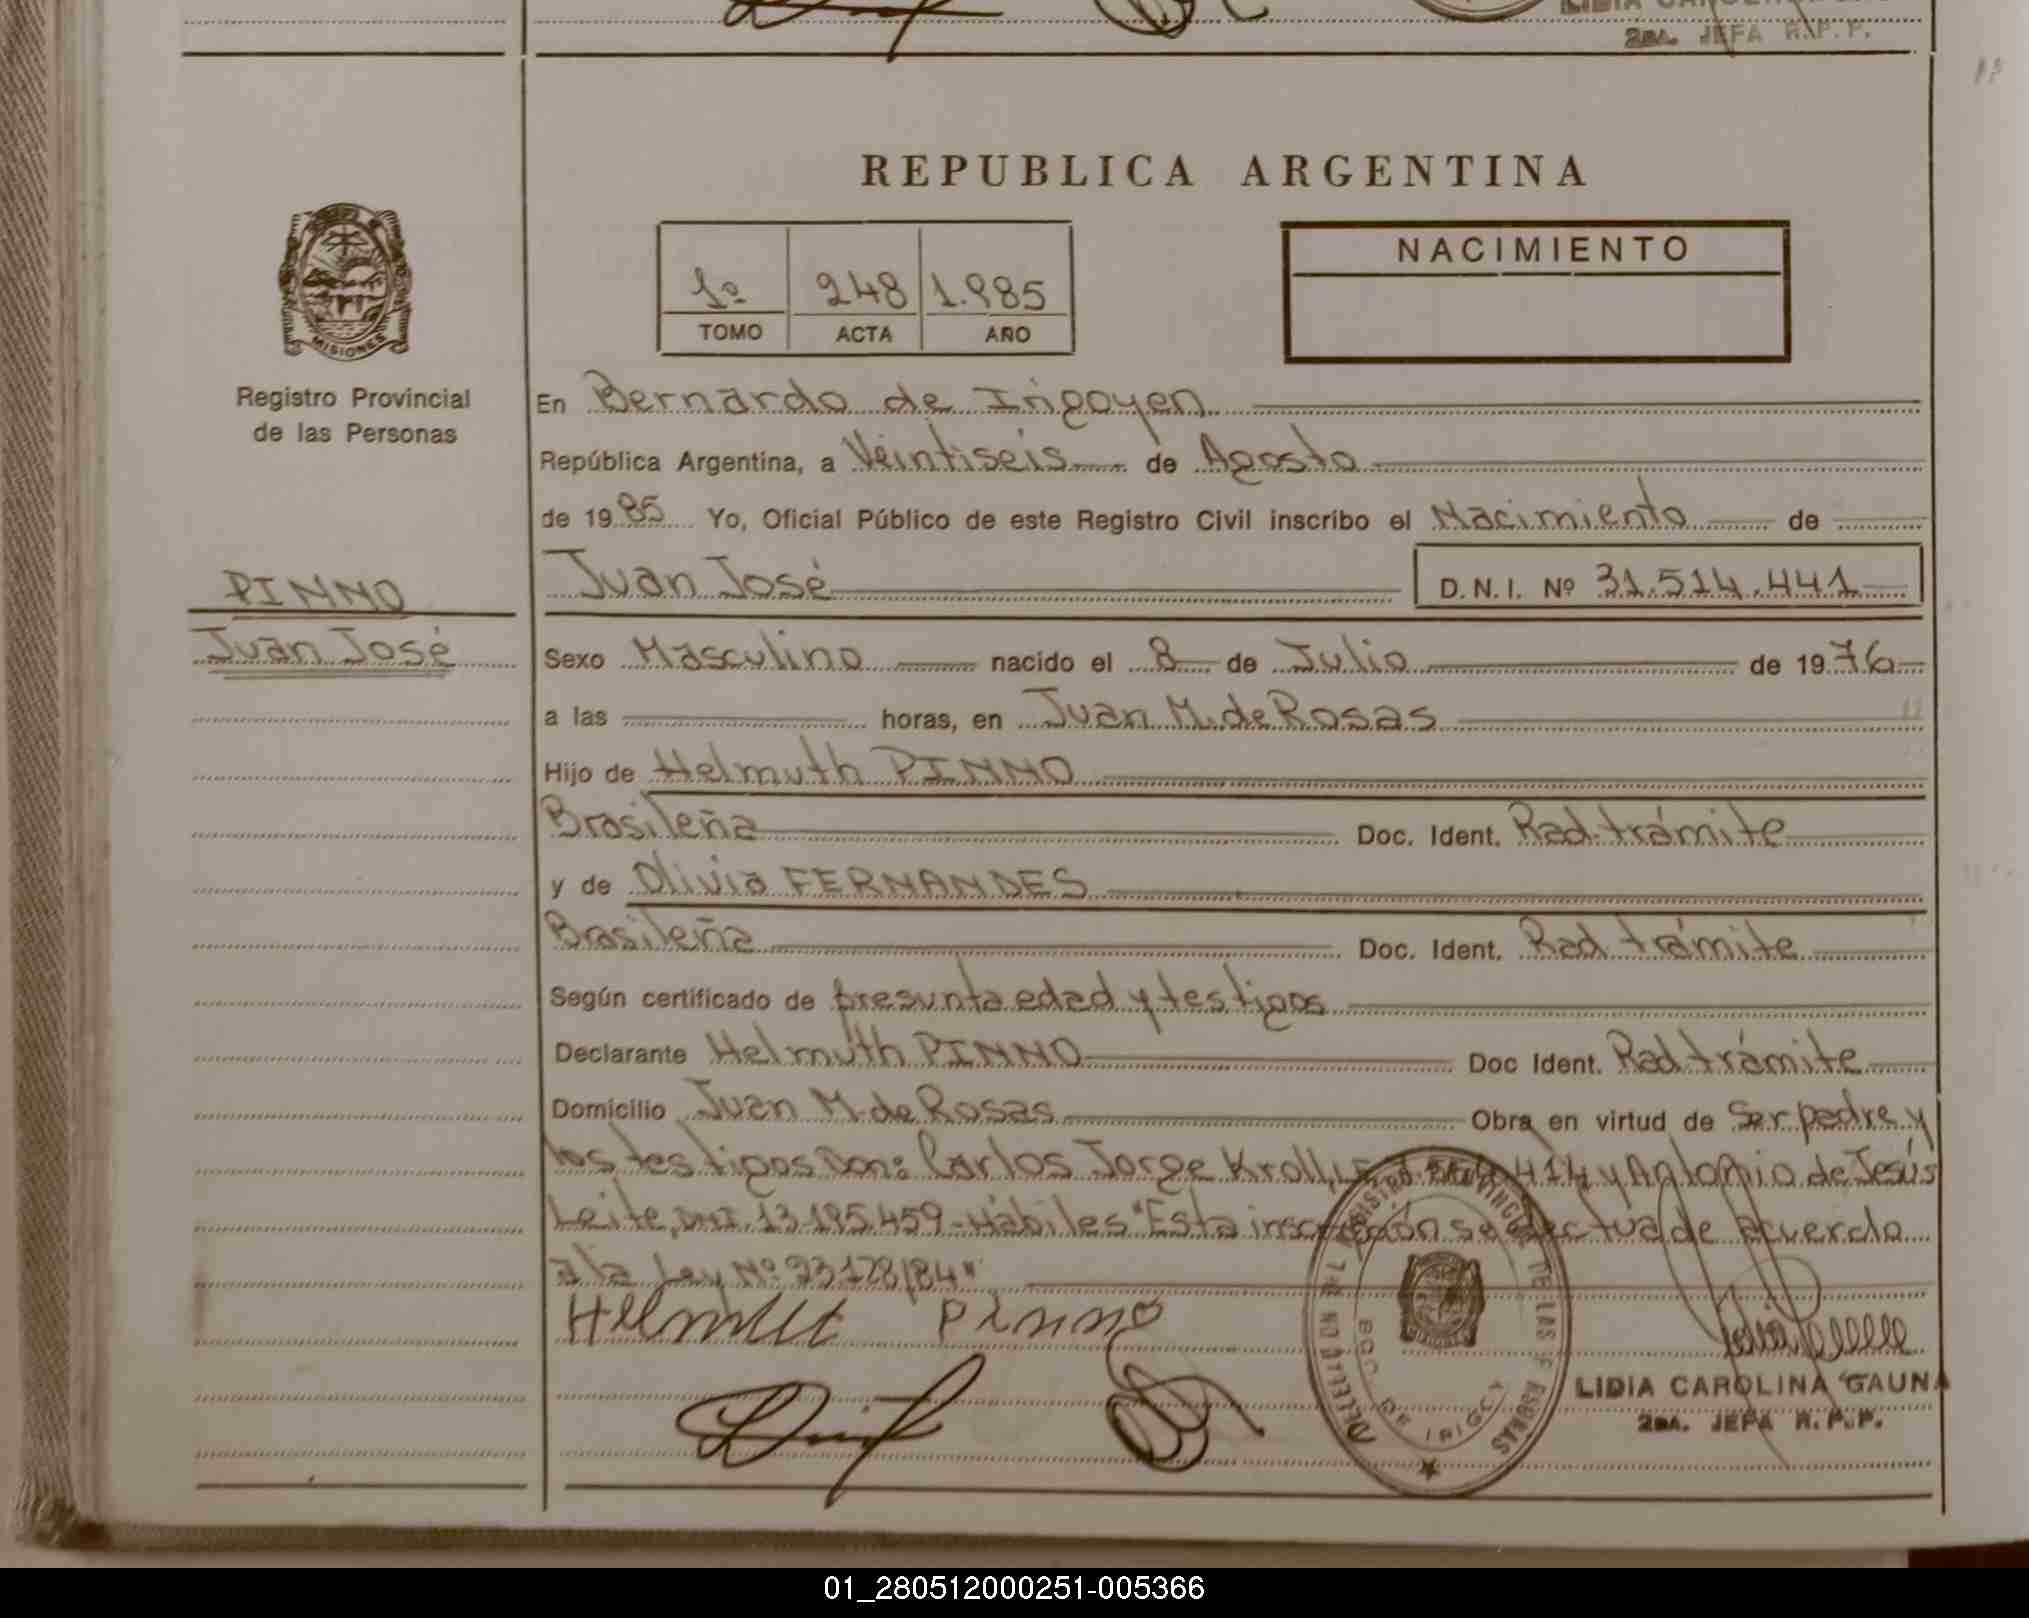 2DA. JEFA R.P.P.
REPUBLICA ARGENTINA
NACIMIENTO
1º 248 1.985
TOMO ACTA AÑO
MISIONES
Registro Provincial
de las Personas
En Bernardo de Irigoyen
República Argentina, a Veintiseis de Agosto
de 1985 Yo, Oficial Público de este Registro Civil inscribo el Nacimiento de
PINNO
Juan José
Juan José D.N.I. Nº 31.514.441
Sexo Masculino nacido el 8 de Julio de 1976
a las horas, en Juan M. de Rosas
Hijo de Helmuth PINNO
Brasileña Doc. Ident. Rad. trámite
y de Olivia FERNANDES
Brasileña Doc. Ident. Rad. trámite
Según certificado de presunta edad y testigos
Declarante Helmuth PINNO Doc Ident. Rad. trámite
Domicilio Juan M. de Rosas Obra en virtud de Ser padre y
los testigos Don: Carlos Jorge Kroll, y Antonio de Jesús
Leite, DNI. 13.195.459 - Hábiles "Esta inscripción se efectua de acuerdo
a la Ley Nº 23128/84"
Helmut Pinno
REGISTRO PROVINCIAL DE LAS PERSONAS
BDO. DE IRIGOY
LIDIA CAROLINA GAUNA
2DA. JEFA R.P.P.
01_280512000251-005366